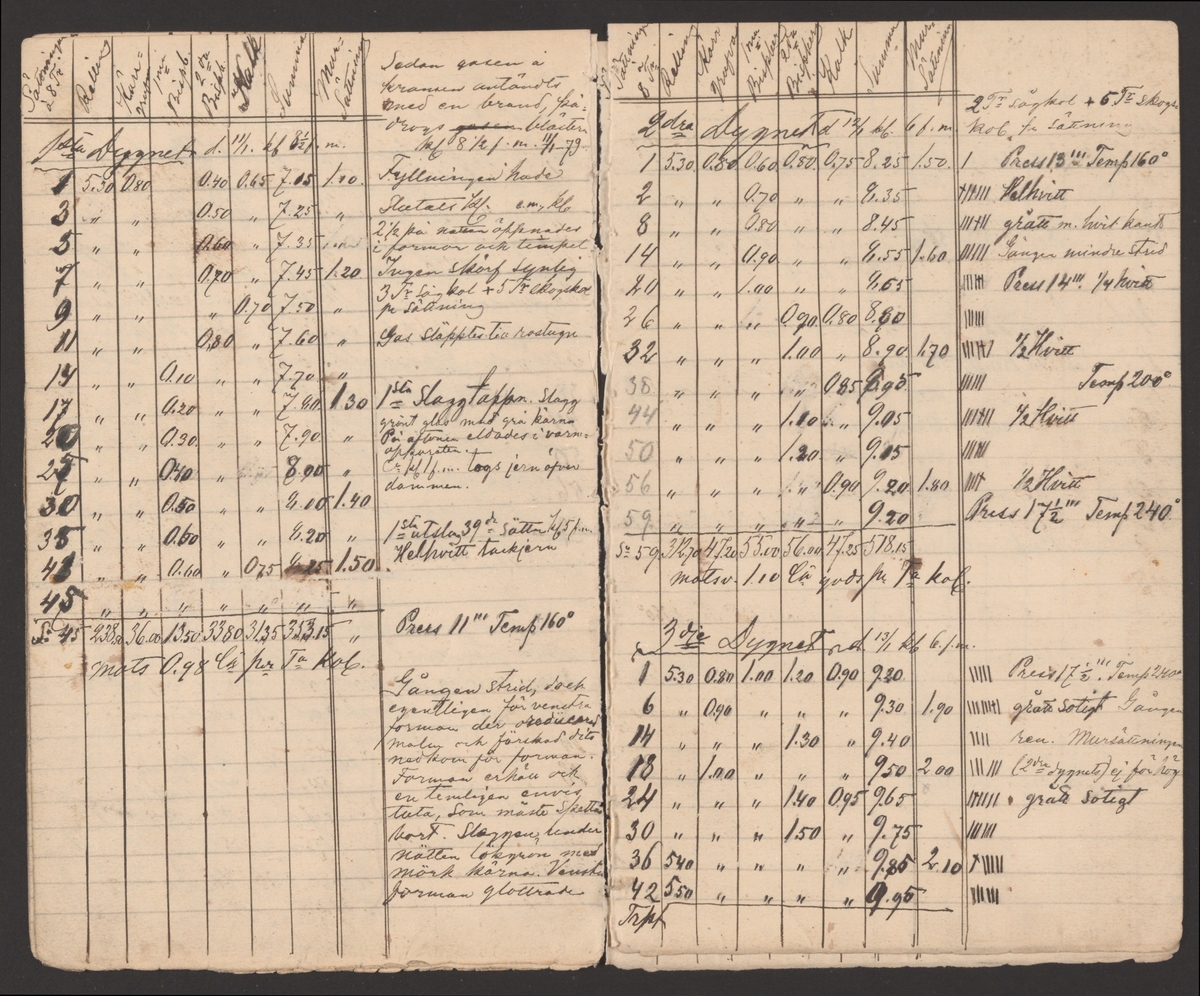 Sättningar à 8 Tr. Rällin Kärr-grufva Brisp. 2dra Brisp. Kalk Summa Mur-sättning
Sedan gasen a
kransen antändts
med en brand, på-
drogs gasen blästen
kl 8 1/2 f.m. 11/1 79
1sta Dygnet d. 11/1. kl 8 1/2 f.m.
1 5.30 0.80 0.40 0.65 7.15 1.10. Fyllningen hade
3 " " 0.50 " 7.25 "
5 " " 0.60 " 7.35 2 1/2 på natten öppnades
i formor och tempel
7 " " 0.70 " 7.45 1.20 Ingen skörf synlig
9 " " " 0.70 7.50 " 3 Tr Sågkol + 5 Tr Skogskol
pr Sättning
11 " " 0.80 " 7.60 " Gas släpptes till rostugn
14 " " 0.10 " " 7.70 "
17 " " 0.20 " " 7.80 1.30 1sta Slaggtappn. Slagg
grönt glas med grå kärna
20 " " 0.30 " " 7.90 " På aftonen eldades i varm-
apparaten.
25 " " 0.40 " 8.00 " kl f.m. togs jern öfver
dammen.
30 " " 0.50 " " 8.00 1.40
35 " " 0.60 " " 8.20 " 1sta utslag 39de Sättn. kl 5 f.m.
41 " " 0.60 " 0.75 8.25 1.50. Helhvitt tackjern
45 " " " " " " "
Sa 45 238.50 36.00 13.50 33.80 31.35 353.15 " Press 11''' Temp 160°
mots 0.98 Cr pr Ta kol.
Gången strid, dock
egentligen för venstra
forman der oreducerad
malm och förskad dits
ned kom för forman.
Forman erhöll och
en temligen envis
tuta, som måste spettas
bort. Slaggen under
natten lökgrön med
mörk kärna. Venstra
forman glottrade
Sättningar 8 Tr. Rällin Kärrgrufva Brispber 2dra Brispber Kalk Summa Mur-Sättning
2 Tr sågkol + 5 Tr skogs
kol, pr Sättning
2dra Dygnet d 12/1 kl. 6 f.m.
1 5.30 0.80 0.60 0.80 0.75 8.25 1.50. 1 Press 13''' Temp 160°
2 " " 0.70 " " 8.35 Helhvitt
8 " " 0.80 " " 8.45 grått m. hvit kant
14 " " 0.90 " " 8.55 1.60 Gången mindre strid
20 " " 1.00 " " 8.65 Press 14''' 1/4 hvitt
26 " " " 0.90 0.80 8.80
32 " " " 1.00 " 8.90 1.70 1/2 Hvitt
38 " " " " 0.85 8.95 Temp 200°
44 " " " 1.10 " 9.05 1/2 Hvitt
50 " " " 1.20 " 9.15
56 " " " " 0.90 9.20 1.80 1/2 Hvitt
59 " " " " " 9.20 Press 17 1/2''' Temp 240°
Sa 59 312.70 47.20 55.00 56.00 47.25 518.15
motsv. 1.10 Cr gods pr Ta kol.
3dje Dygnet d. 13/1 kl 6. f.m.
1 5.30 0.80 1.00 1.20 0.90 9.20 Press 17 1/2''' Temp 240°
6 " 0.90 " " " 9.30 1.90 grått sotigt Gången
14 " " " 1.30 " 9.40 ren. Mursättningen
18 " 1.00 " " " 9.50 2.00 (2dra dygnets) ej för hög
24 " " " 1.40 0.95 9.65 grått sotigt
30 " " " 1.50 " 9.75
36 5.40 " " " " 9.85 2.10
42 5.50 " " " " 9.95
Trpt